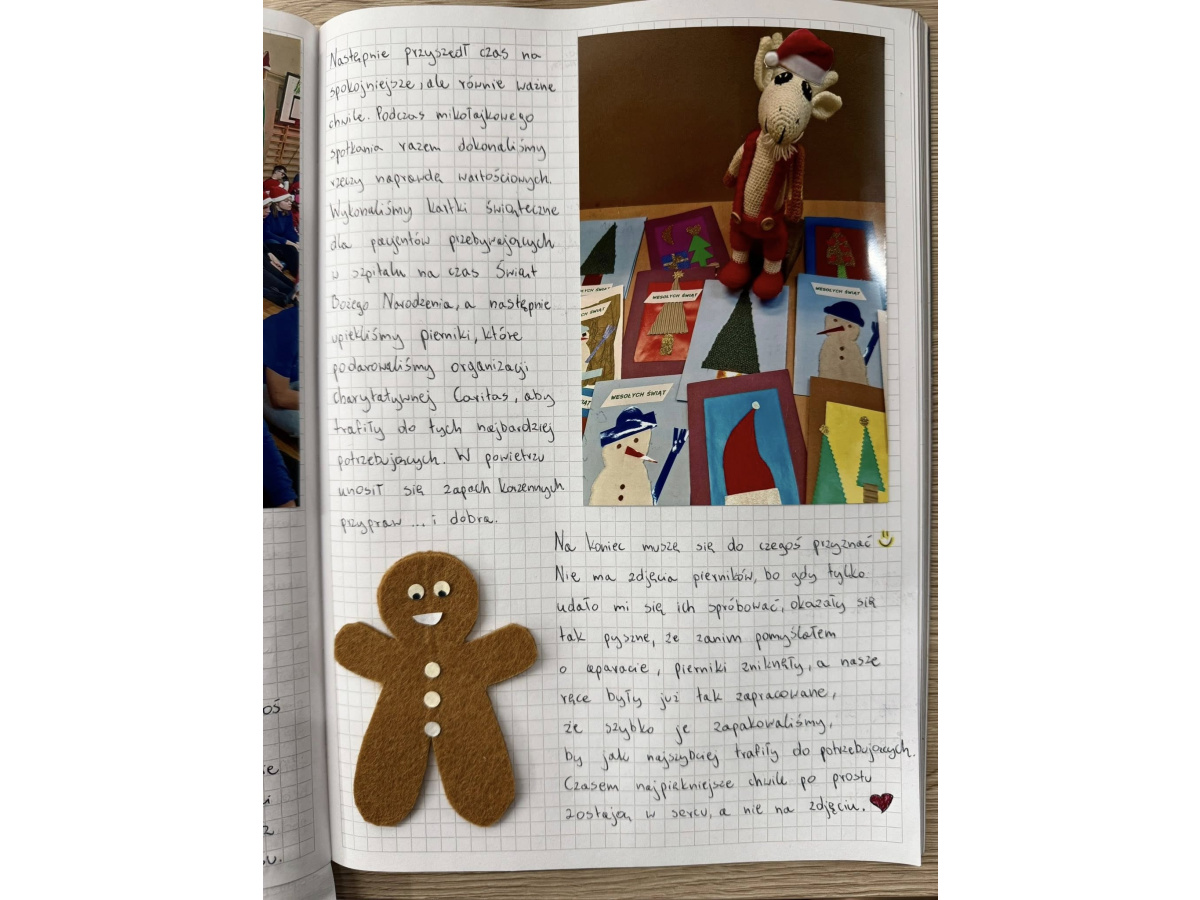 Następnie przyszedł czas na
spokojniejsze, ale równie ważne
chwile. Podczas mikołajkowego
spotkania razem dokonaliśmy
rzeczy naprawdę wartościowych.
Wykonaliśmy kartki świąteczne
dla pacjentów przebywających
w szpitalu na czas Świąt
Bożego Narodzenia, a następnie
upiekliśmy pierniki, które
podarowaliśmy organizacji
charytatywnej Caritas, aby
trafiły do tych najbardziej
potrzebujących. W powietrzu
unosił się zapach korzennych
przypraw... i dobra.
WESOŁYCH ŚWIĄT
WESOŁYCH ŚWIĄT
WESOŁYCH ŚWIĄT
Na koniec muszę się do czegoś przyznać
Nie ma zdjęcia pierników, bo gdy tylko
udało mi się ich spróbować, okazały się
tak pyszne, że zanim pomyślałem
o aparacie, pierniki zniknęły, a nasze
ręce były już tak zapracowane,
że szybko je zapakowaliśmy,
by jak najszybciej trafiły do potrzebujących.
Czasem najpiękniejsze chwile po prostu
zostają w sercu, a nie na zdjęciu.